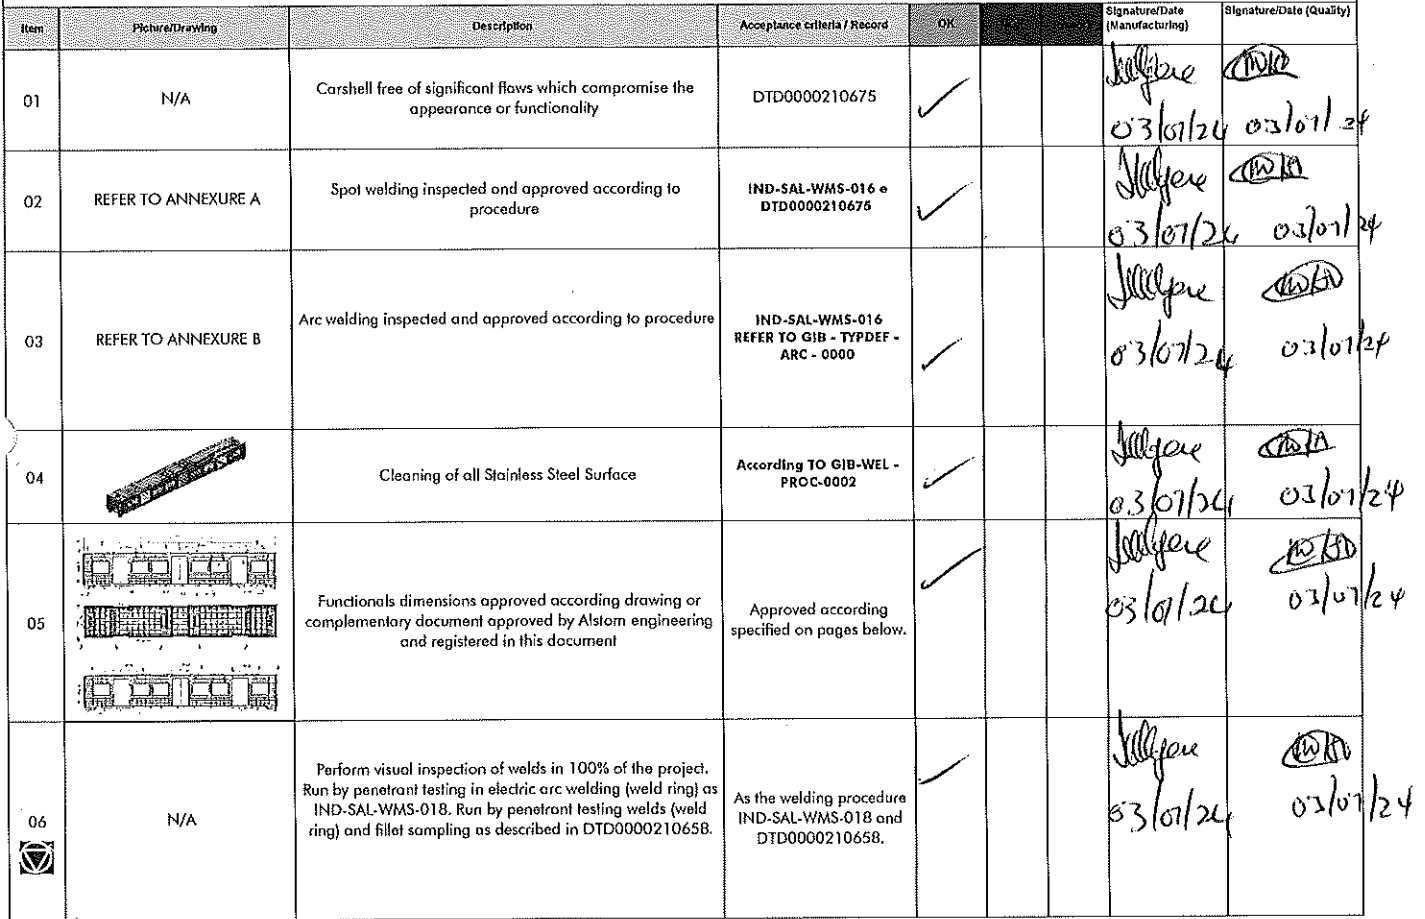 Item
Picture/Drawing
Description
Acceptance criteria / Record
OK
Signature/Date
(Manufacturing)
Signature/Date (Quality)
01
N/A
Carshell free of significant flaws which compromise the
appearance or functionality
DTD0000210675
03/07/24 03/07/24
02
REFER TO ANNEXURE A
Spot welding inspected and approved according to
procedure
IND-SAL-WMS-016 e
DTD0000210675
03/07/24 03/07/24
03
REFER TO ANNEXURE B
Arc welding inspected and approved according to procedure
IND-SAL-WMS-016
REFER TO GIB - TYPDEF -
ARC - 0000
03/07/24 03/07/24
04
Cleaning of all Stainless Steel Surface
According TO GIB-WEL -
PROC-0002
03/07/24 03/07/24
05
Functionals dimensions approved according drawing or
complementary document approved by Alstom engineering
and registered in this document
Approved according
specified on pages below.
03/07/24 03/07/24
06
N/A
Perform visual inspection of welds in 100% of the project.
Run by penetrant testing in electric arc welding (weld ring) as
IND-SAL-WMS-018. Run by penetrant testing welds (weld
ring) and fillet sampling as described in DTD0000210658.
As the welding procedure
IND-SAL-WMS-018 and
DTD0000210658.
03/07/24 03/07/24